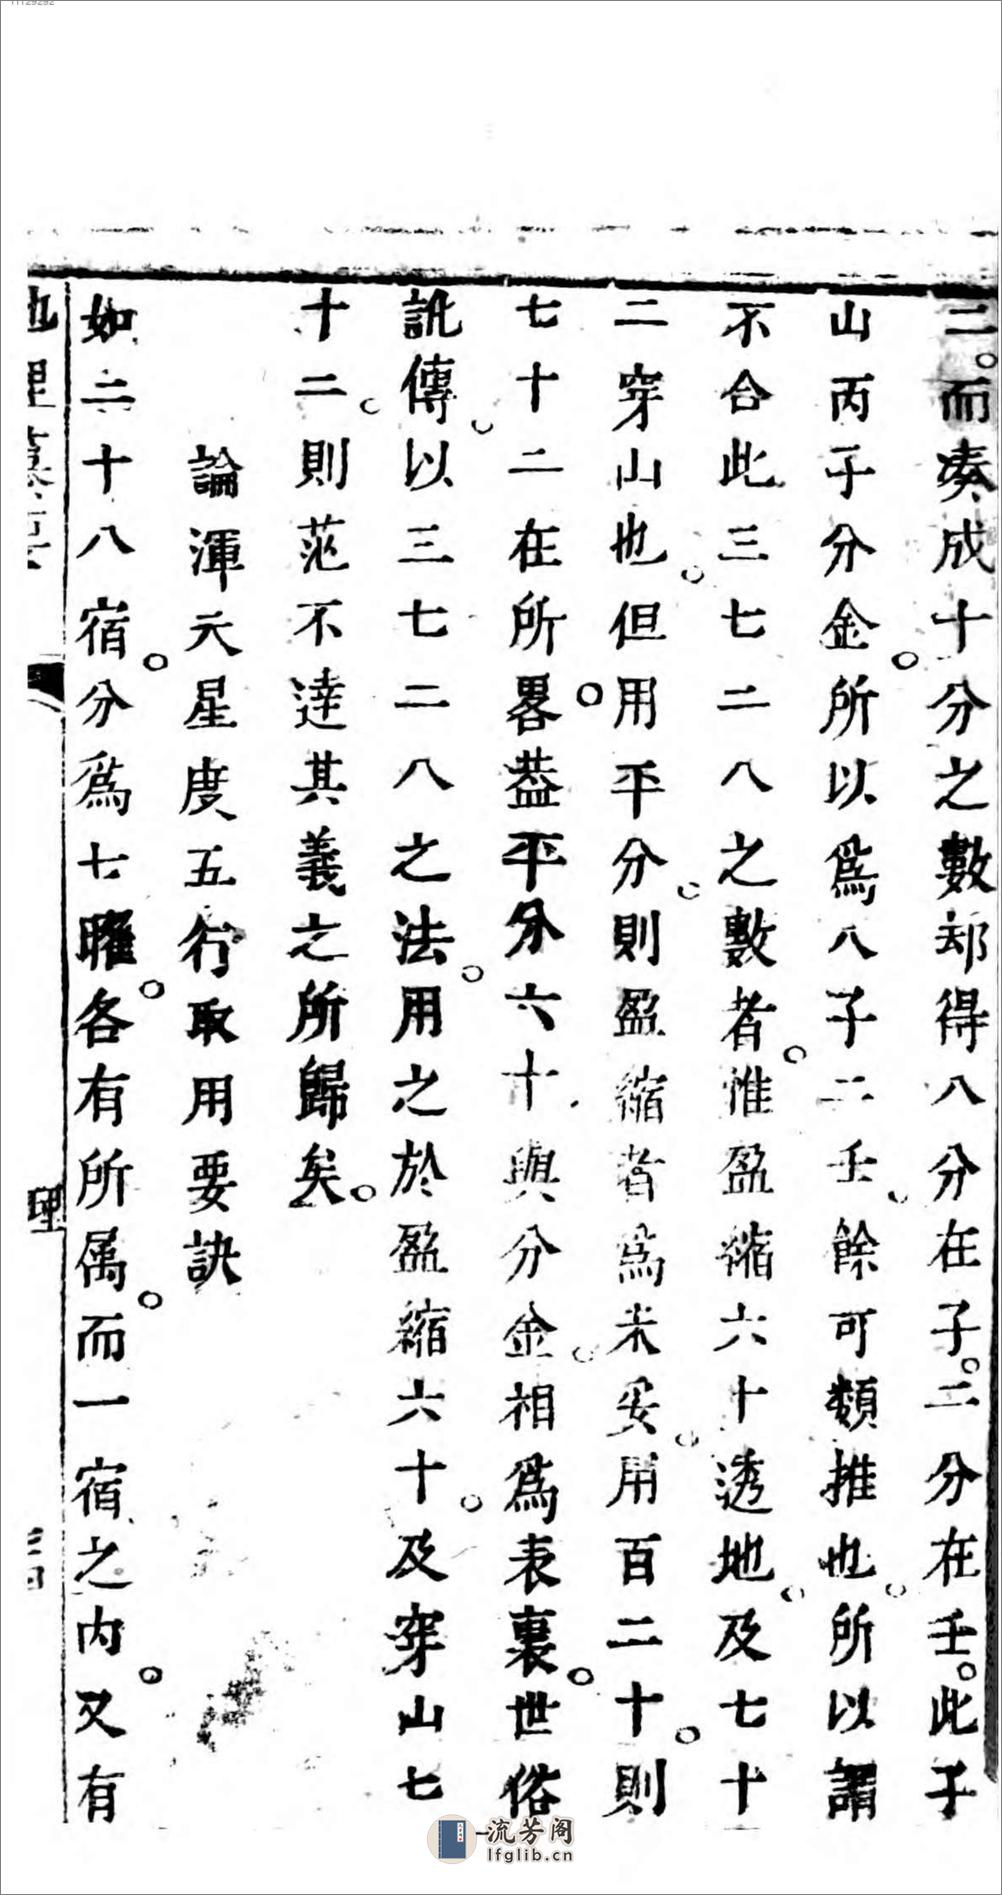 二。而凑成十分之數却得八分在子。二分在壬。此子
山丙子分金。所以爲八子二壬。餘可類推也。所以謂
不合此三七二八之數者。惟盈縮六十透地。及七十
二穿山也。但用平分。則盈縮者爲未妥。用百二十。則
七十二在所畧。葢平分六十與分金。相爲表裏。世俗
訛傳。以三七二八之法。用之於盈縮六十。及穿山七
十二。則茫不逹其義之所歸矣。
論渾天星度五行取用要訣
如二十八宿。分爲七曜。各有所属。而一宿之内。又有
地理
理
流芳阁
lfglib.cn